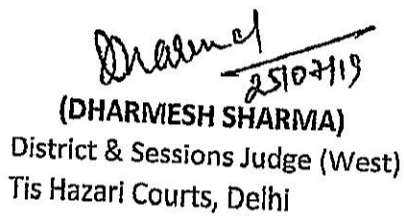 Dharmesh
25/07/19
(DHARMESH SHARMA)
District & Sessions Judge (West)
Tis Hazari Courts, Delhi